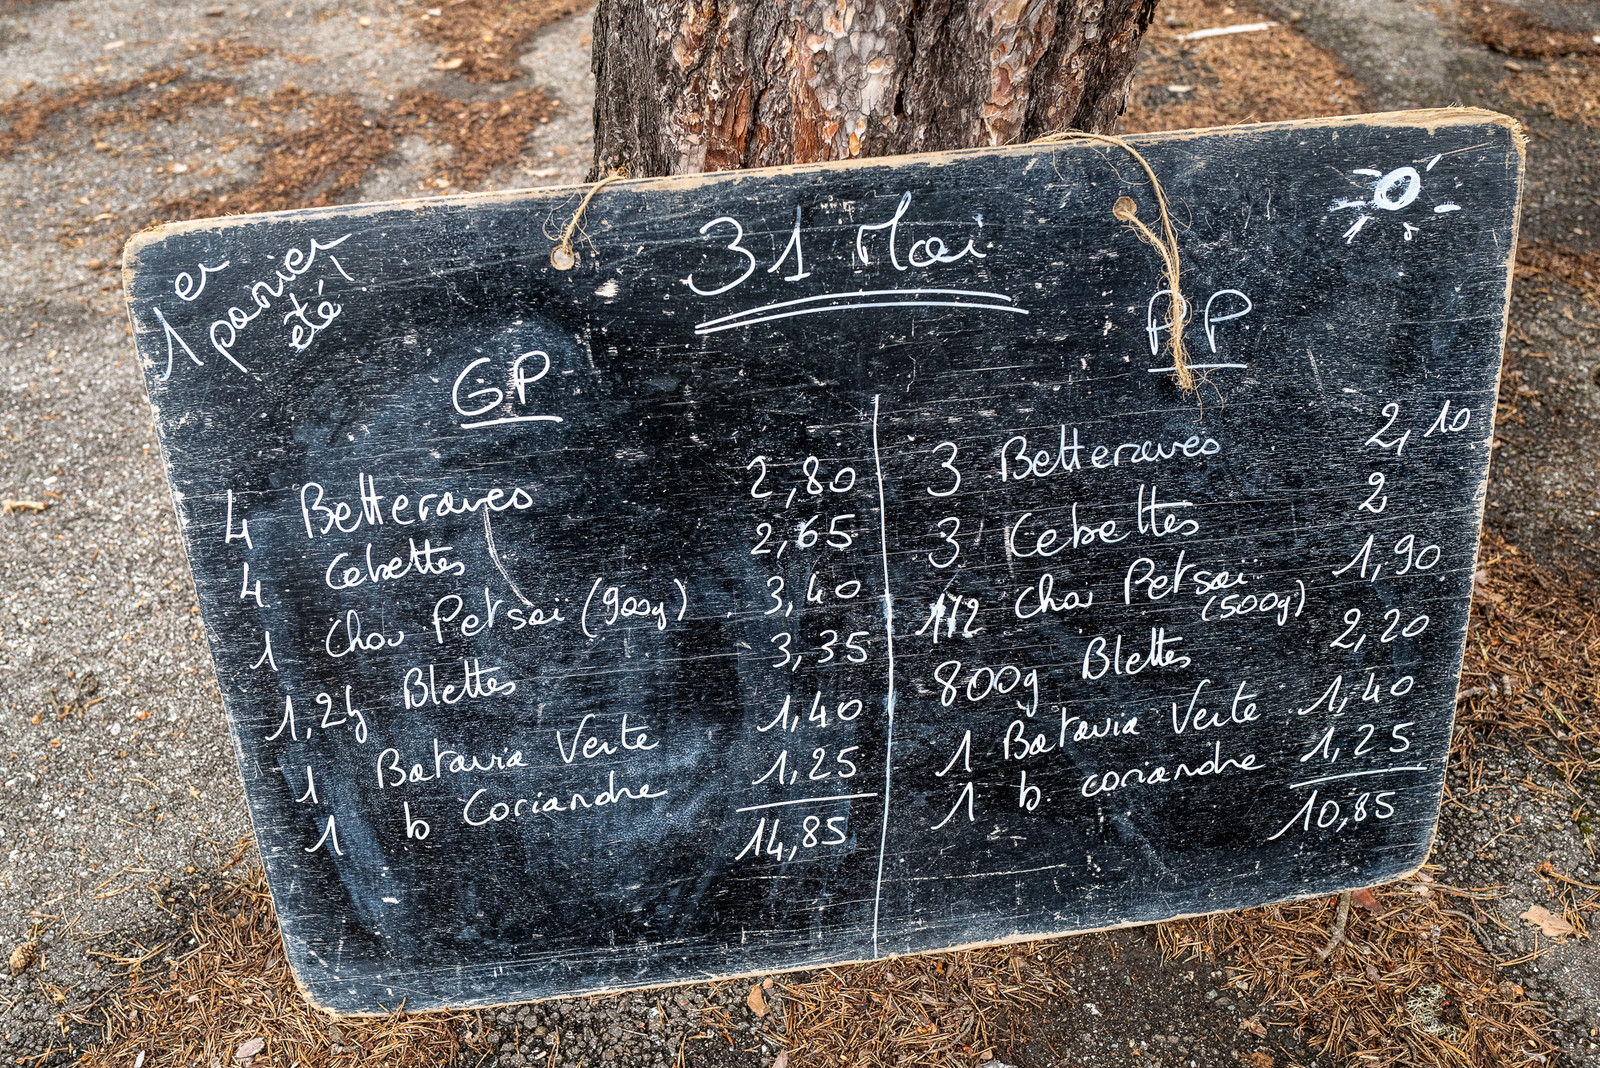 1er panier
été !
31 Mai
GP
4 Betteraves 2,80
4 Cebettes 2,65
1 Chou Petsaï (900g) 3,40
1,2kg Blettes 3,35
1 Batavia Verte 1,40
1 b Coriandre 1,25
14,85
PP
3 Betteraves 2,10
3 Cebettes 2
1/2 Chou Petsaï (500g) 1,90
800g Blettes 2,20
1 Batavia Verte 1,40
1 b. coriandre 1,25
10,85